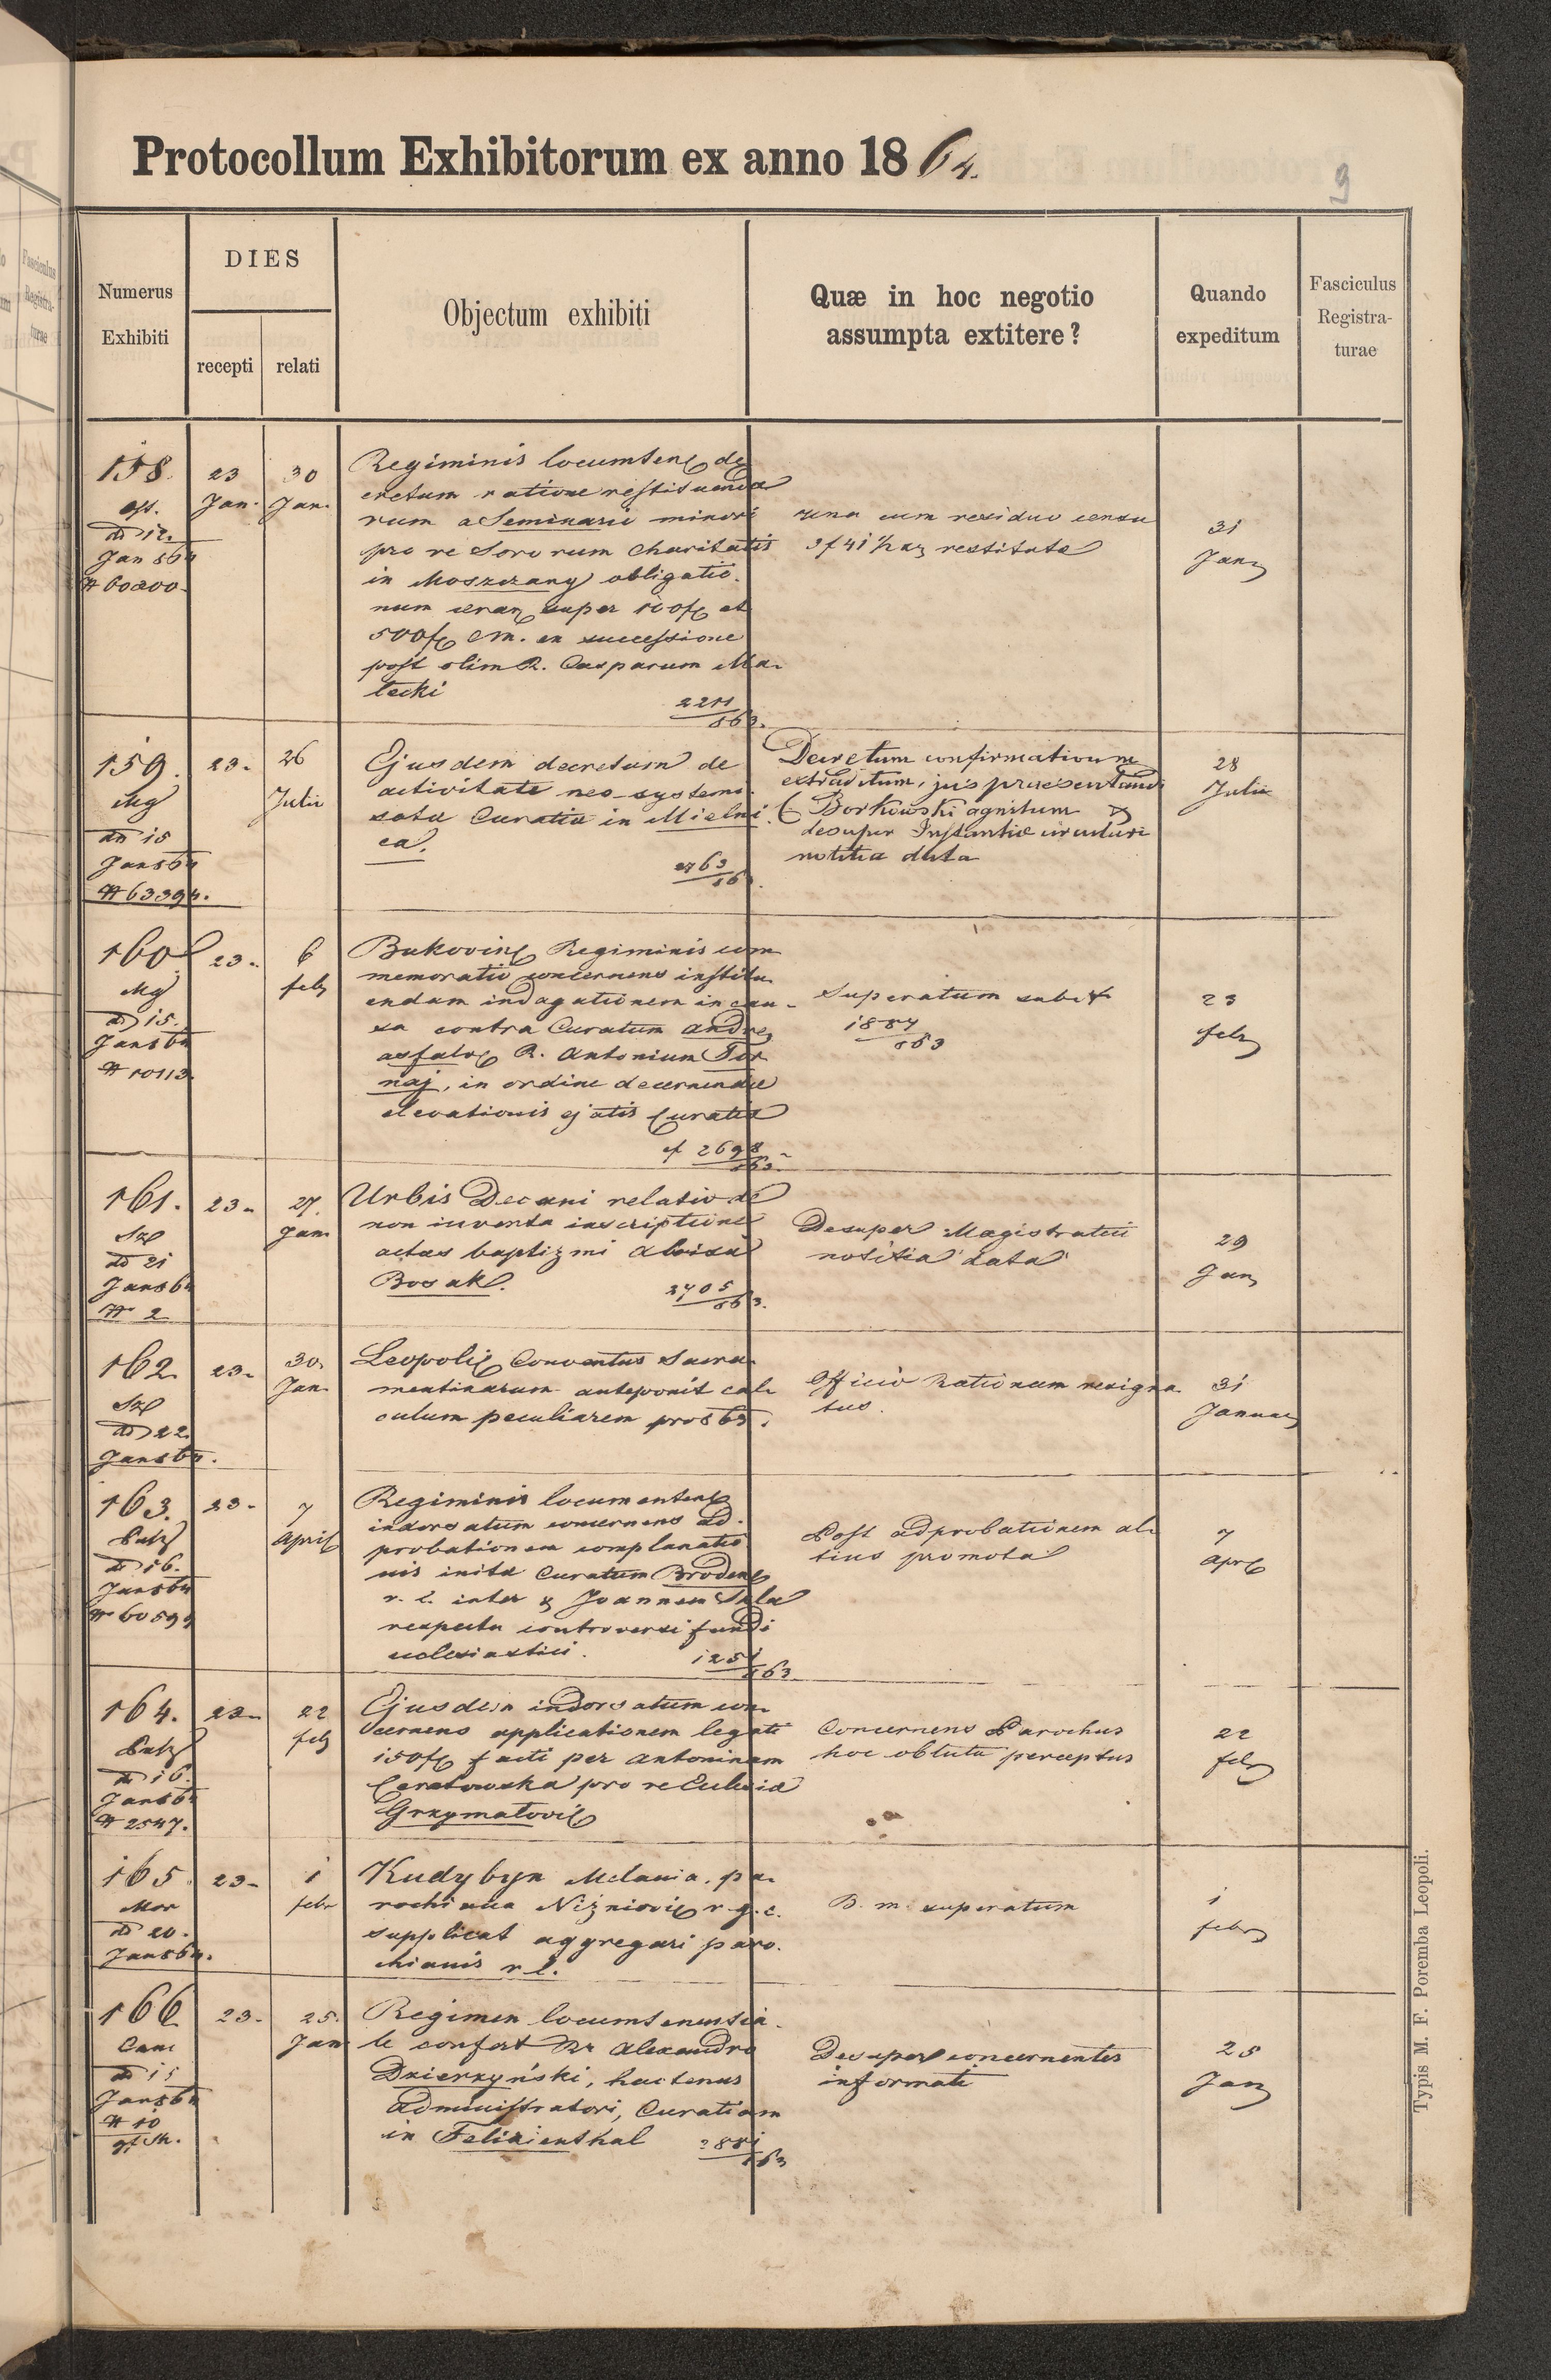 Protocollum Exhibitorum ex anno 1864.
9
Numerus
Exhibiti
DIES
recepti
relati
Objectum exhibiti
Quæ in hoc negotio
assumpta extitere?
Quando
expeditum
Fasciculus
Registra-
turae
158.
dd 12.
Jan 864
# 60200.
23
Jan.
30
Jan.
Regiminis locumten de
cretum ratione restituenda
rum a Seminario minori
pro re Sororum Charitatis
in Moszczany obligatio.
num super 100f et
500f CM. ex successione
post olim R. Casparum Ma.
tecki
2211
863.
una cum residuo censu
restituta
31
Jan
159.
Mg
dd 15
Jan 864
# 63394.
23.
26
Julii
Ejusdem decretum de
activitate neo-systemi.
satæ Curatiæ in Mielni.
ca.
2763
863.
Decretum confirmationum
extraditum, jus praesentandi
C Borkowski agnitum &
desuper Instantiæ
notitia data
28
Julii
160
Mg
dd 15.
Jan 864
# 10113.
23.
6
feb
Bukovin Regiminis com
memoratio concernens institu.
endam indagationem in cau-
sa contra Curatum Andre
asfalv R. Antonium Tor
naj, in ordine decernendæ
elevationis ejatis Curatiæ
cf 2698
863.
Superatum sub #
1887
863
23
feb
161.
Szl
dd 21
Jan 864
# 2
23.
27.
Jan
Urbis Decani relatio de
non inventa inscriptione
actus baptizmi Aloisii
Bosak.
2705
863.
Desuper Magistratui
notitia data
29
Jan
162.
Szl
dd 22.
Jan 864.
23.
30.
Jan.
Leopoli Conventus Sacra.
mentinarum anteponit cal.
culum peculiarem pro 863.
Officio Rationum resigna.
tus.
31
Januar
163.
dd 16.
Jan 864
# 60599
23.
7
April
Regiminis locumenten
indorsatum concernens ad.
probationem complanatio
nis initæ Curatum Broden
r. l. inter & Joannem
respectu controversi fundi
ecclesiastici.
1251
863
Post adprobationem al.
tius promota
7
Apr
164.
dd 16.
Jan 864
# 2547.
23.
22
feb
Ejusdem indorsatum con.
cernens applicationem legati
150f facti per Antoninam
pro re Ecclesiæ
Grzymałovi
Concernens Parochus
hoc obtutu perceptus
22
feb
165.
Mor
dd 20.
Jan 864.
23.
1
febr
Kudybyn Melania, pa.
rochiana Niżniovi r.g.c.
supplicat aggregari paro.
chianis r.l.
B. m. superatum
1
febr
166
dd 15
Jan 864
# 10
23.
25.
Jan
Regimen locumtenentia.
le confert R Alexandro
Dzierzyński, hactenus
Administratori, Curatiam
in Felizienthal
2881
863
Desuper concernentes
informati
25
Jan
Typis M. F. Poremba Leopoli.